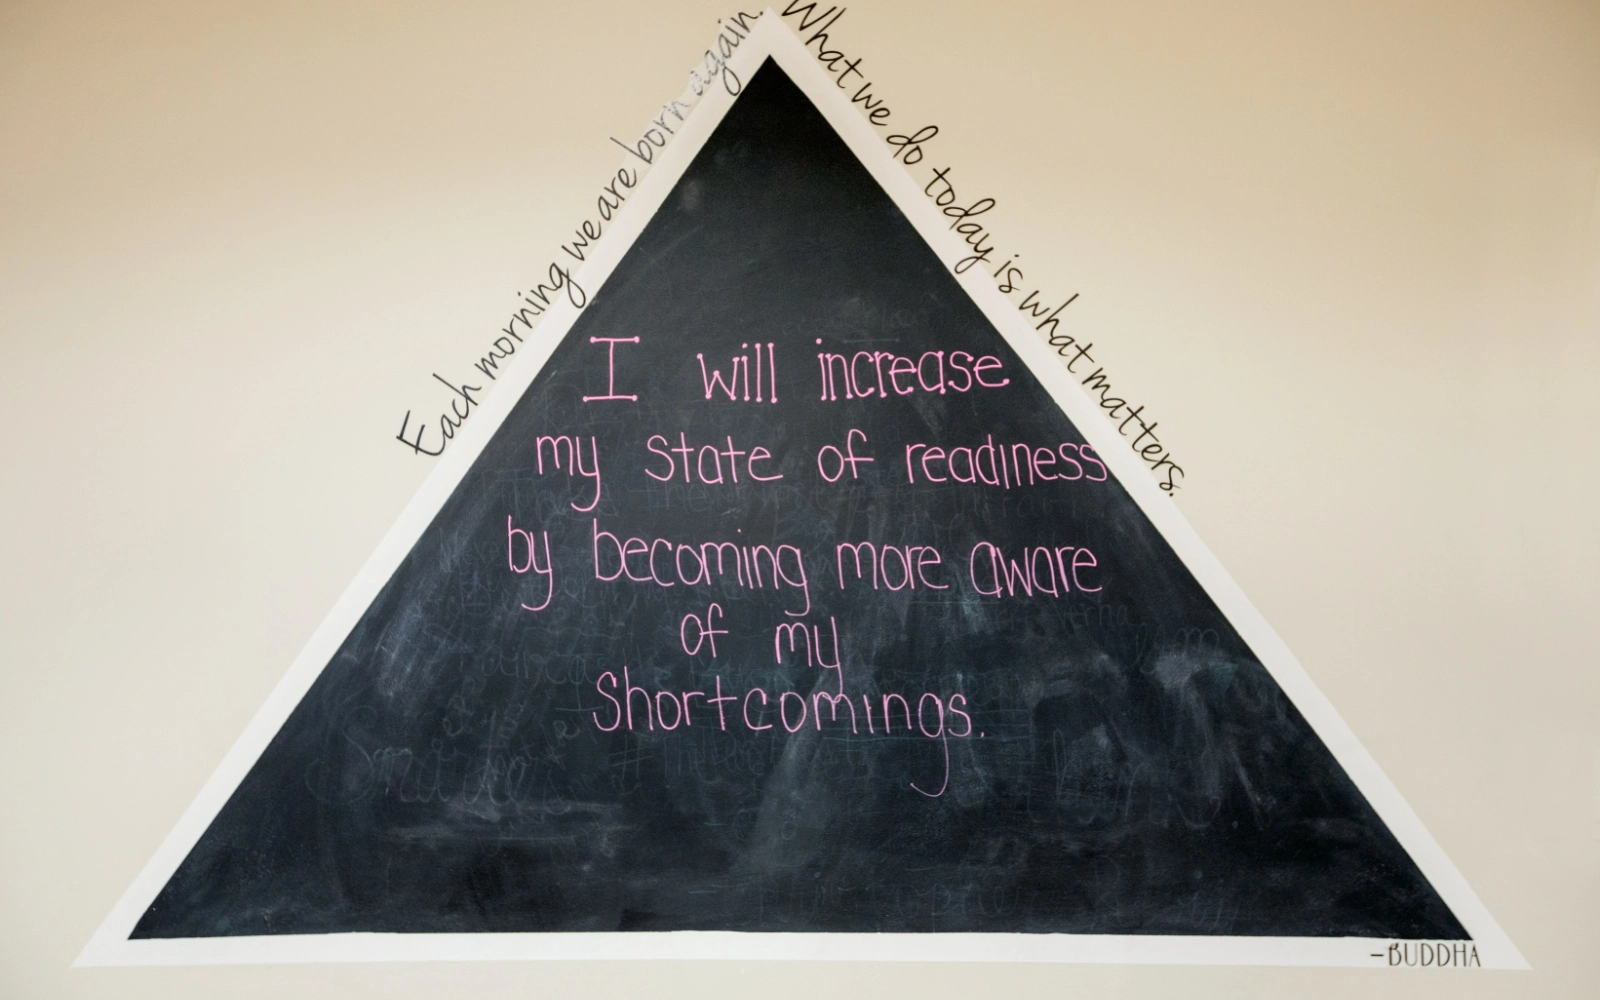 Each morning we are born again.
What we do today is what matters.
I will increase
my state of readiness
by becoming more aware
of my
Shortcomings.
-BUDDHA